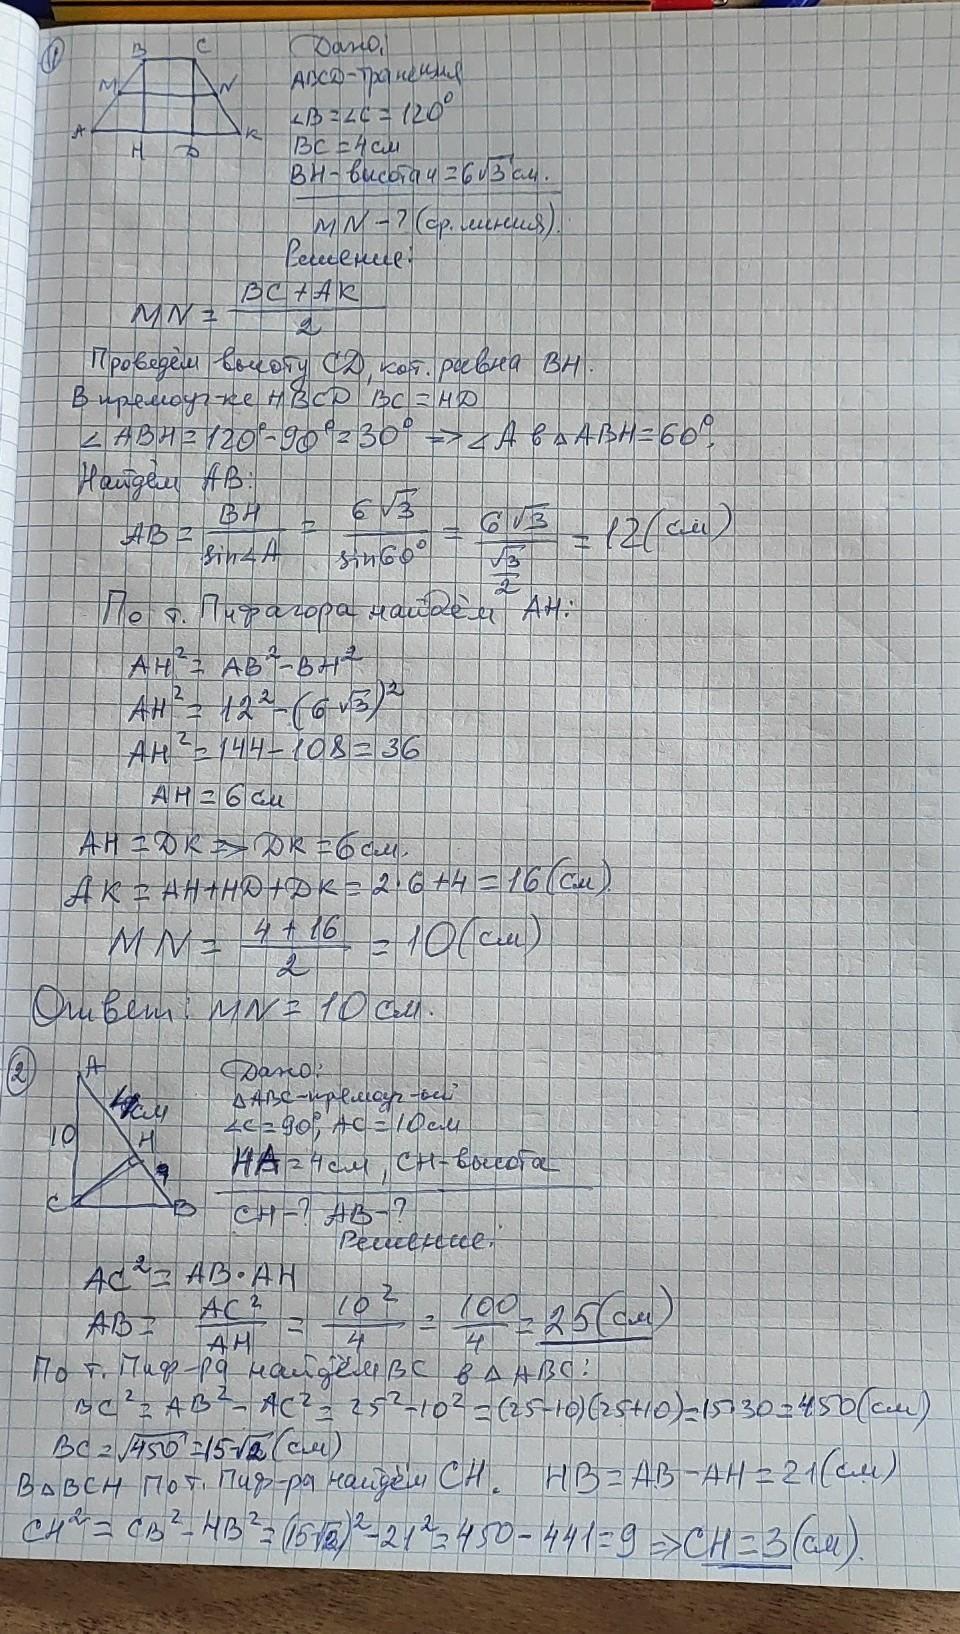 1
B C
M N
A K
H D
Дано:
ABCD-трапеция
∠B=∠C=120°
BC=4см
BH-высота и =6√3см.
MN-?(ср.линия).
Решение:
MN = (BC+AK)/2
Проведём высоту CD, кот. равна BH.
В прямоуг-ке HBCD BC=HD
∠ABH=120°-90°=30° => ∠A в △ABH=60°.
Найдём AB:
AB = BH/sin∠A = 6√3/sin60° = 6√3/(√3/2) = 12(см)
По т. Пифагора найдём AH:
AH²= AB²-BH²
AH²= 12²-(6√3)²
AH²=144-108=36
AH=6см
AH=DK=>DK=6см.
AK=AH+HD+DK=2·6+4=16(см)
MN = (4+16)/2 = 10(см)
Ответ: MN=10см.
2
A
4см
10
H
C B
Дано:
△ABC-прямоуг-ый
∠C=90°, AC=10см
HA=4см, CH-высота
CH-? AB-?
Решение:
AC²=AB·AH
AB= AC²/AH = 10²/4 = 100/4 = 25(см)
По т. Пиф-ра найдём BC в △ABC:
BC²=AB²-AC²=25²-10²=(25-10)(25+10)=15·30=450(см)
BC=√450=15√2(см)
В△BCH по т. Пиф-ра найдём CH. HB=AB-AH=21(см)
CH²=CB²-HB²=(15√2)²-21²=450-441=9=>CH=3(см).